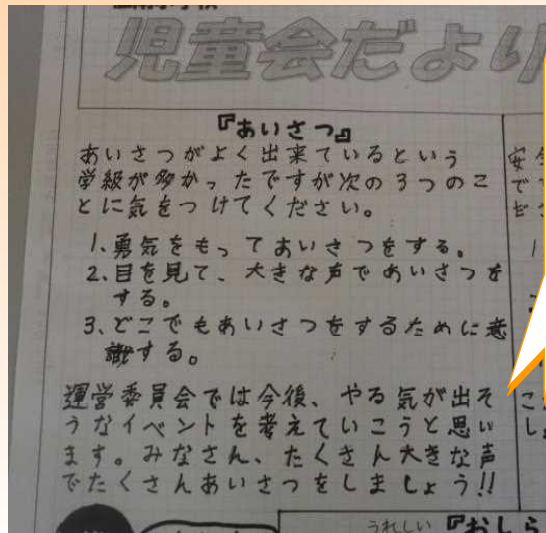 児童会だより
『あいさつ』
あいさつがよく出来ているという
学級が多かったですが次の3つのこ
とに気をつけてください。
1.勇気をもってあいさつをする。
2.目を見て、大きな声であいさつを
する。
3.どこでもあいさつをするために意
識する。
運営委員会では今後、やる気が出そ
うなイベントを考えていこうと思い
ます。みなさん、たくさん大きな声
でたくさんあいさつをしましょう!!
うれしい『おしら